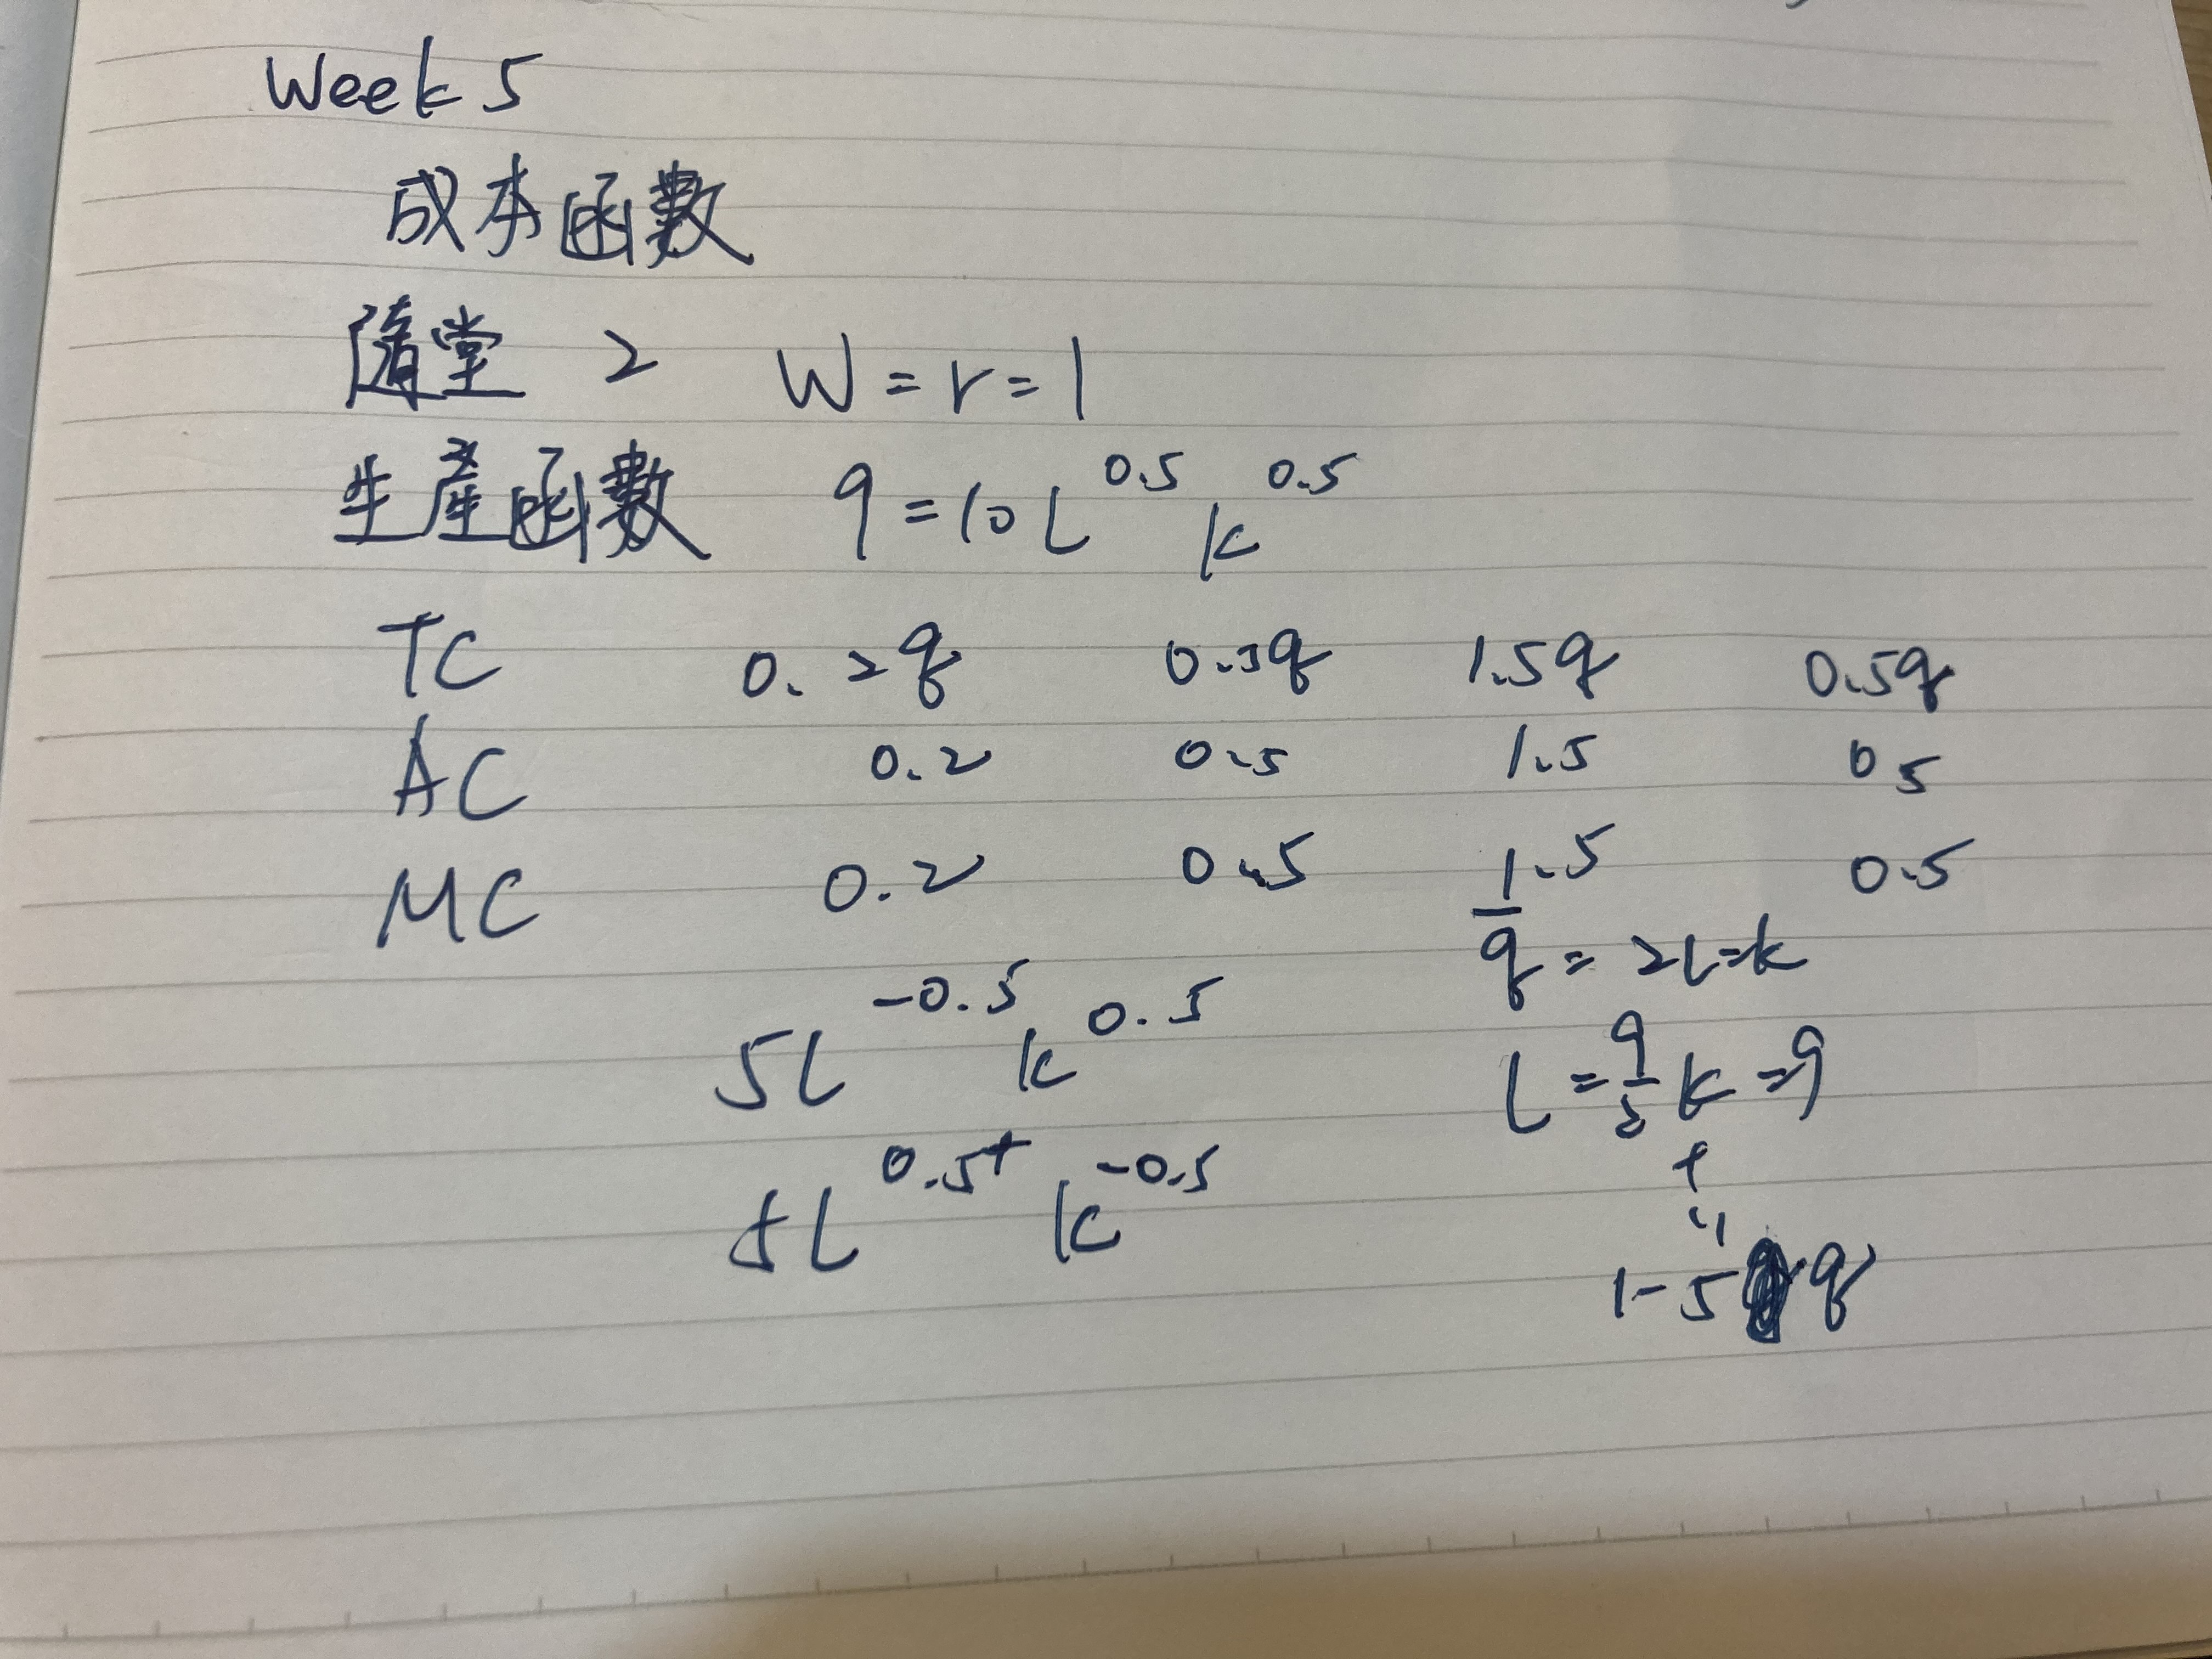 Week 5
成本函數
隨堂 2 W = r = 1
生產函數 q = 10 L^0.5 K^0.5
TC 0.2q 0.5q 1.5q 0.5q
AC 0.2 0.5 1.5 0.5
MC 0.2 0.5 1.5 0.5
q = 2L = K
5L^-0.5 K^0.5
L = q/2 K = q
+
5L^0.5+ K^-0.5
"
1.5 q